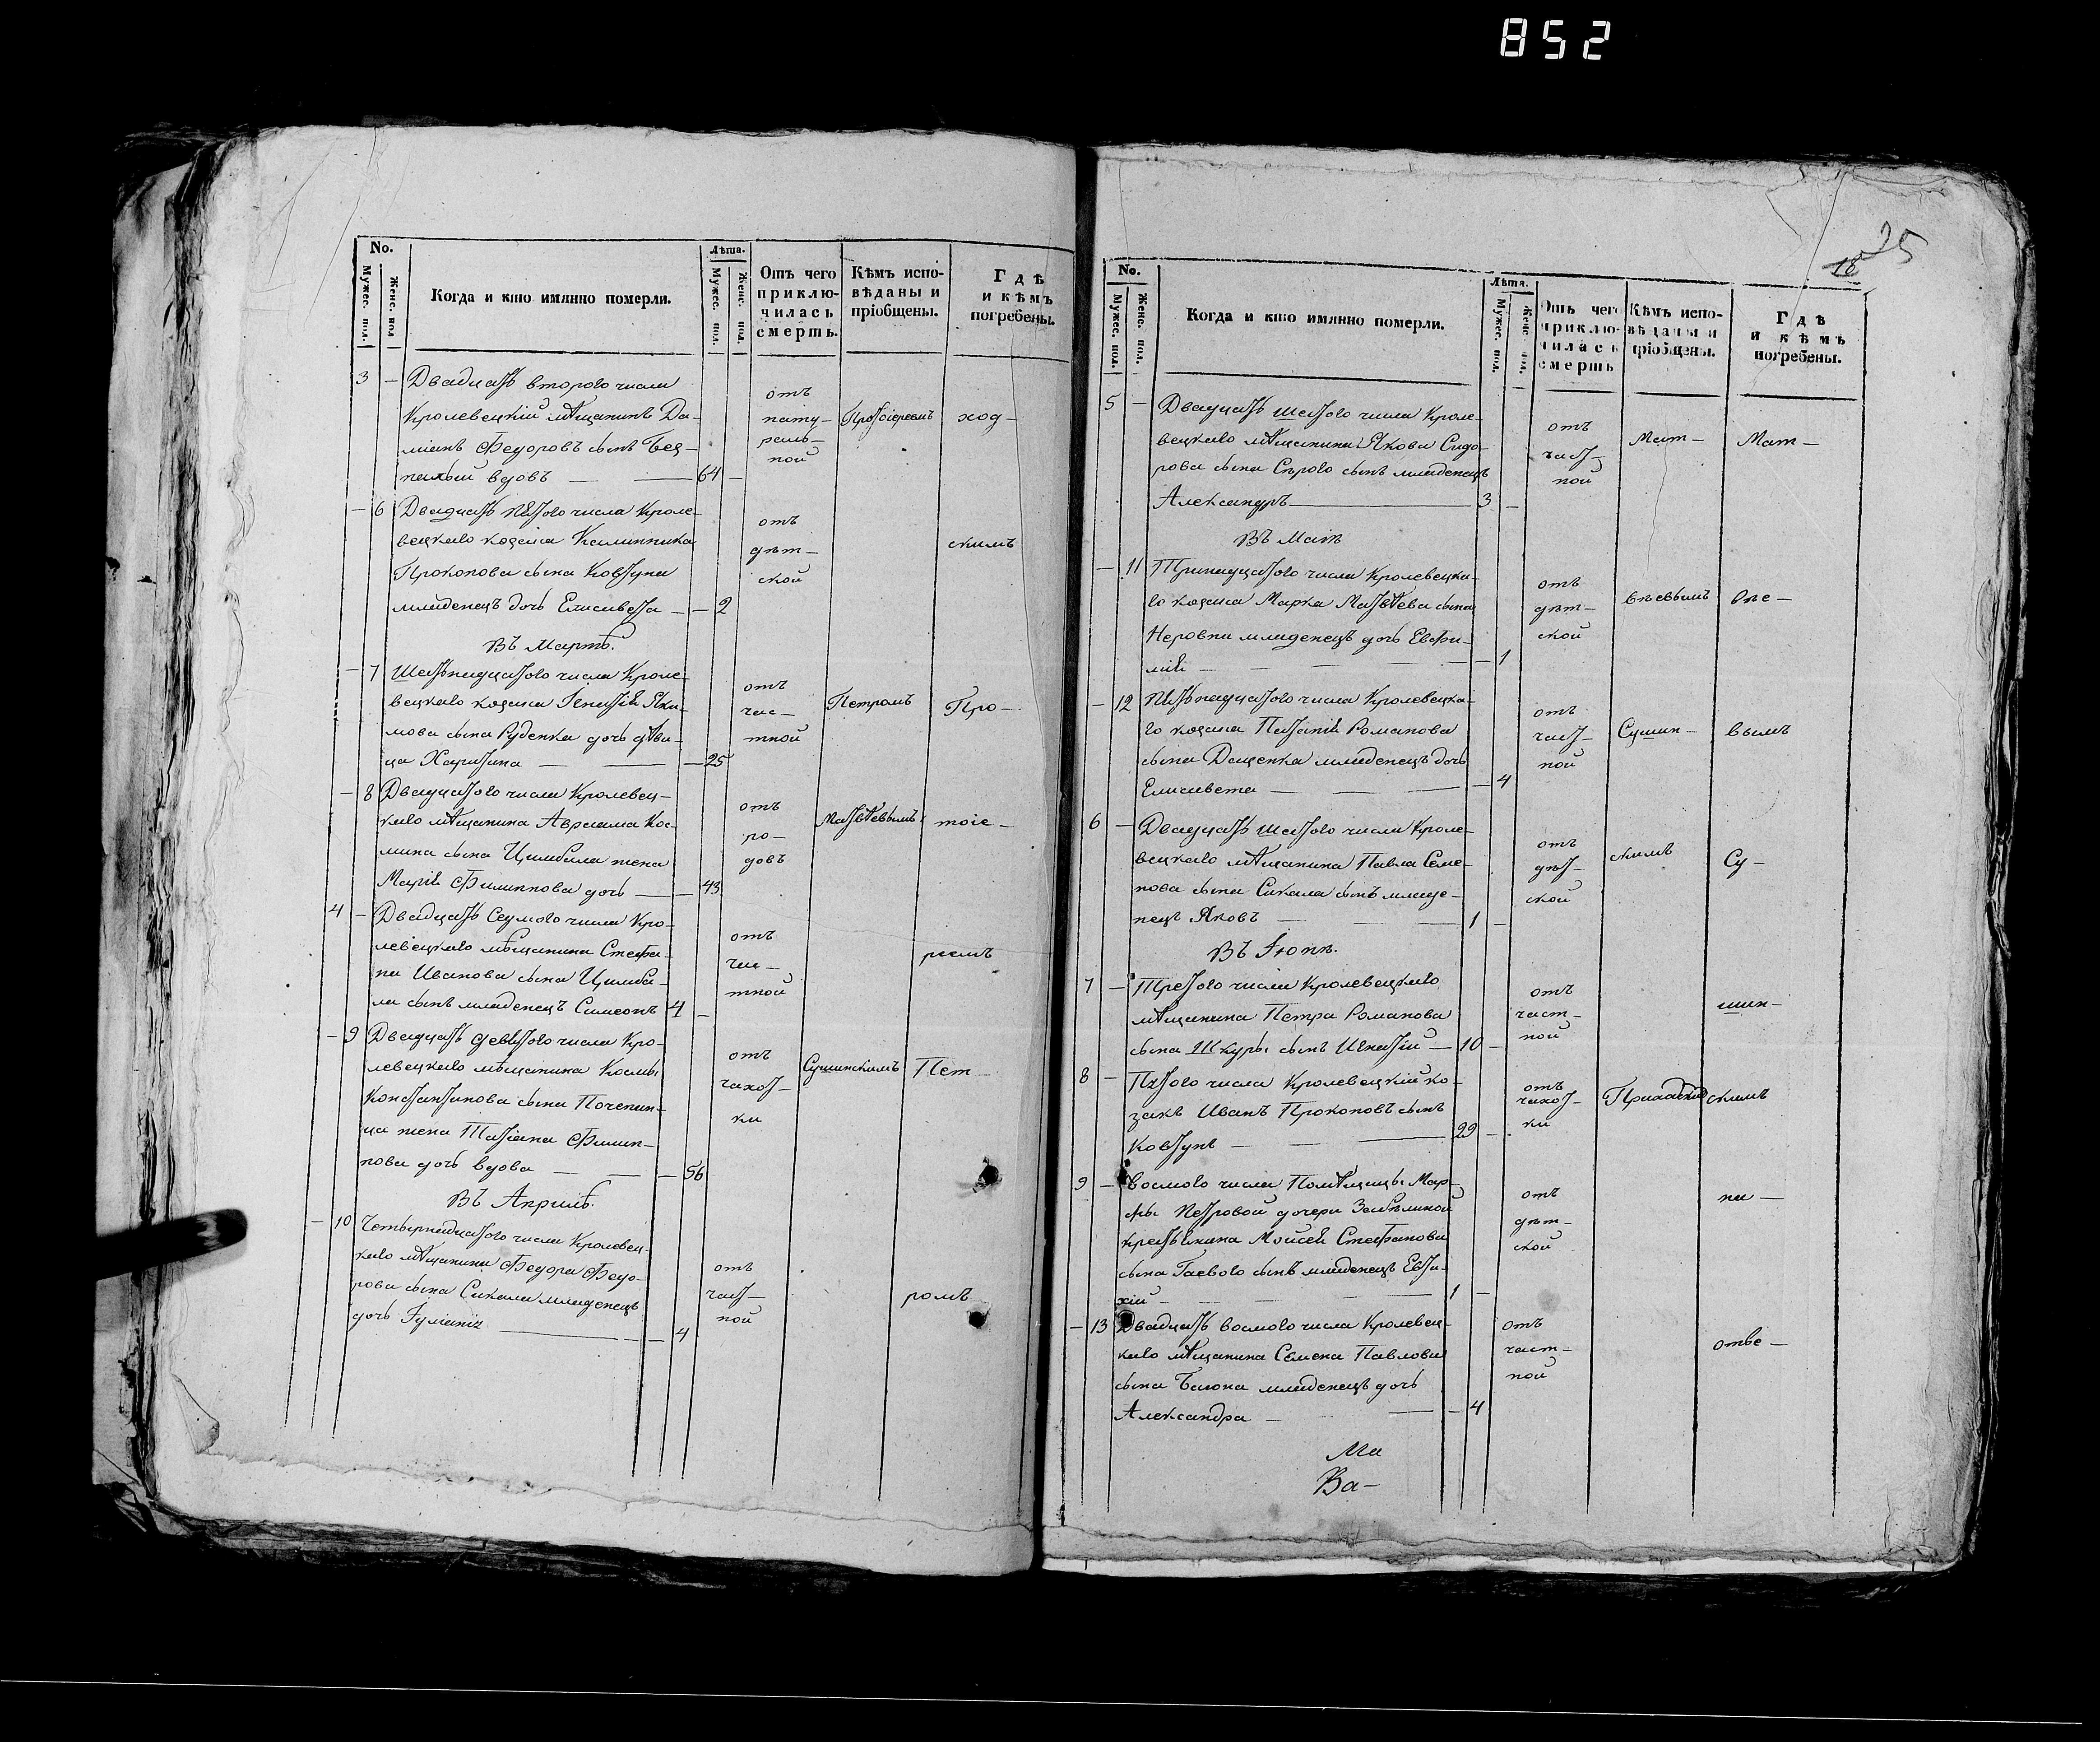 852
No.
Мужес. пол.
Женс. пол
Когда и кто имянно померли.
Лѣта.
Мужес. пол.
Женс. пол.
Отъ чего приклю-
чилась смерть.
Кѣмъ испо-
вѣданы и
пріобщены.
Гдѣ
и кѣмъ
погребены.
3 — Двадцать втораго числа
Кролевецкій мѣщанинъ Да-
міанъ Федоровъ сынъ
вдовъ — — 64 —
отъ
нату-
раль-
ной
Протоіереемъ
ход-
— 6 Двадцать пятого числа Кроле-
вецкаго козака Калинника
Прокопова сына Ковтуна
младенецъ дочь Елисавета — — 2
отъ
дѣт-
ской
скимъ
Въ Мартѣ.
— 7 Шестьнадцатого числа Кроле-
вецкаго козака Игнатія Яки-
мова сына Руденка дочь дѣви-
ца Харитина — — — 25
отъ
час-
тной
Петромъ
Про-
— 8 Двадцатого числа Кролевец-
каго мѣщанина Авраама Кос-
мина сына Цимбала жена
Марія Филиппова дочь — — 43
отъ
ро-
довъ
Матвѣевымъ
тоіе-
4 — Двадцать седмого числа Кро-
левецкаго мѣщанина Стефа-
на Иванова сына Цимба-
ла сынъ младенецъ Симеонъ 4 —
отъ
час-
тной
реемъ
— 9 Двадцать девятого числа Кро-
левецкаго мѣщанина Космы
Константинова сына Почепин-
ца жена Татіана Филип-
пова дочь вдова — — — 56
отъ
чахот-
ки
Сушинскимъ
Пет-
Въ Априлѣ.
— 10 Четырнадцатого числа Кролевец-
каго мѣщанина Федора Федо-
рова сына Сикала младенецъ
дочь Іуліанія — — 4
отъ
част-
ной
ромъ
18 35
No.
Мужес. пол.
Женс. пол.
Когда и кто имянно померли.
Лѣта.
Мужес. пол.
Женс. пол.
Отъ чего
приклю-
чилась
смерть
Кѣмъ испо-
вѣданы и
пріобщены.
Гдѣ
и кѣмъ
погребены.
5 — Двадцать шестого числа Кроле-
вецкаго мѣщанина Якова Сидо-
рова сына Сѣрого сынъ младенецъ
Александръ — 3 —
отъ
част-
ной
Мат-
Мат-
Въ Маіѣ
— 11 Тринадцатого числа Кролевецка-
го козака Марка Матвѣева сына
Неровни младенецъ дочь Евфи-
мія — — — — 1
отъ
дѣт-
ской
вѣевымъ
вѣе-
— 12 Пятьнадцатого числа Кролевецка-
го козака Потапія Романова
сына Даценка младенецъ дочь
Елисавета — — — 4
отъ
част-
ной
Сушин-
вымъ
6 — Двадцать шестого числа Кроле-
вецкаго мѣщанина Павла Семе-
нова сына Сикала сынъ младе-
нецъ Яковъ — — 1 —
отъ
дѣт-
ской
скимъ
Су-
Въ Іюнѣ.
7 — Третого числа Кролевецкаго
мѣщанина Петра Романова
сына Шкуры сынъ Игнатій — 10 —
отъ
част-
ной
шин-
8 — Пятого числа Кролевецкій ко-
закъ Иванъ Прокоповъ сынъ
Ковтунъ — — — 29 —
отъ
чахот-
ки
скимъ
9 — Восмого числа Помѣщицы Мар-
фы Петровой дочери Забѣлиной
крестьянина Моисея Стефанова
сына Гаевого сынъ младенецъ Евти-
хій — — — 1 —
отъ
дѣт-
ской
на —
— 13 Двадцать восмого числа Кролевец-
каго мѣщанина Семена Павлова
сына Баюна младенецъ дочь
Александра — — — 4
отъ
част-
ной
отве —
Ма
Ва-